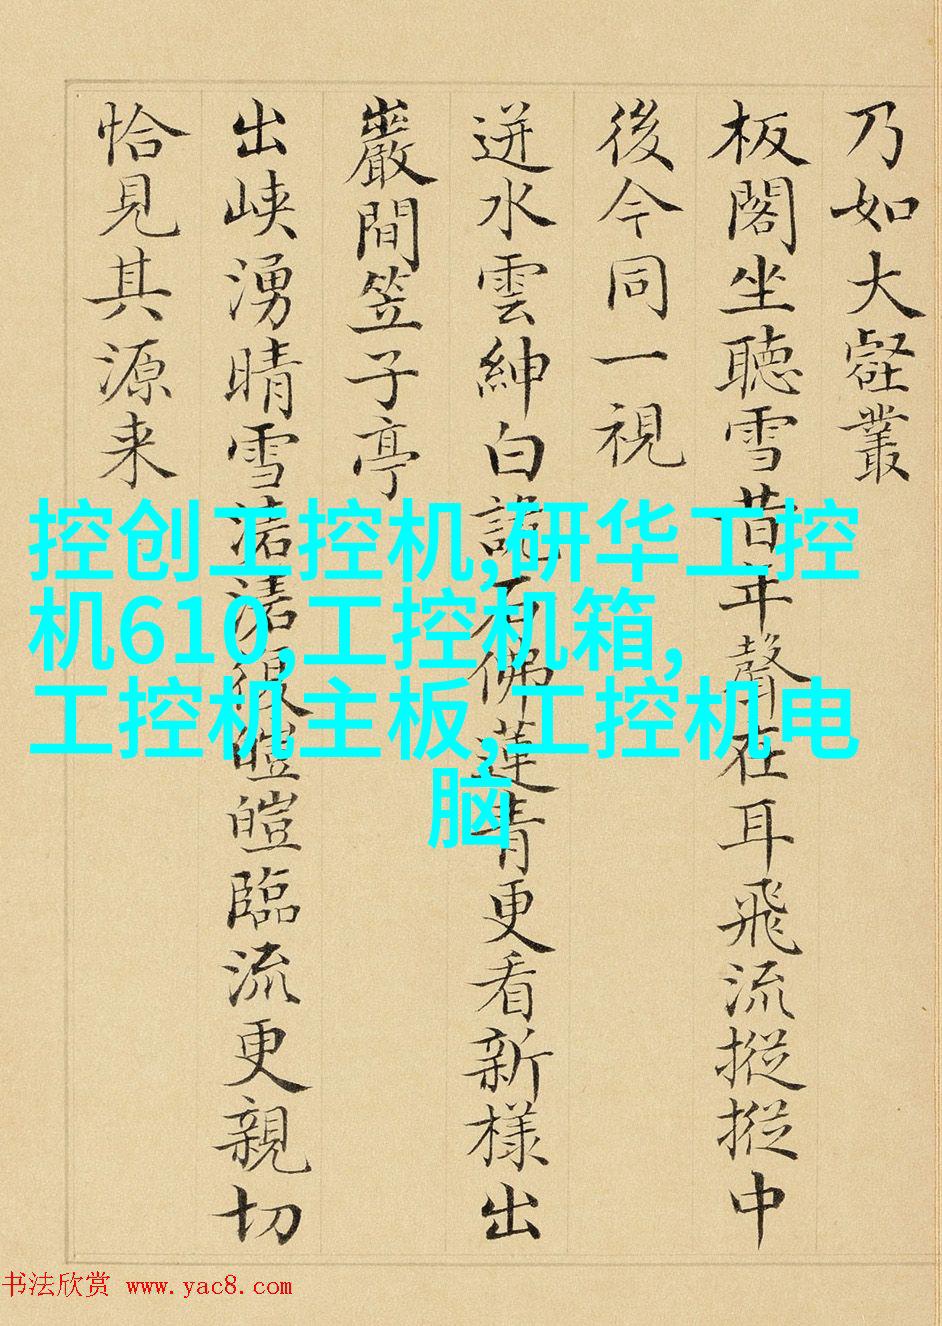 乃如大壑叢
板閣坐聽雪昔年聲在耳飛流摐摐中
後今同一視
迸水雲紳白石佛蓮青更看新樣出
巖間笠子亭
出峡湧晴雪皚皚臨流更親切
恰見其源来
控创工控机,研华工控
机610,工控机箱,
工控机主板,工控机电
脑
书法欣赏 www.yac8.com